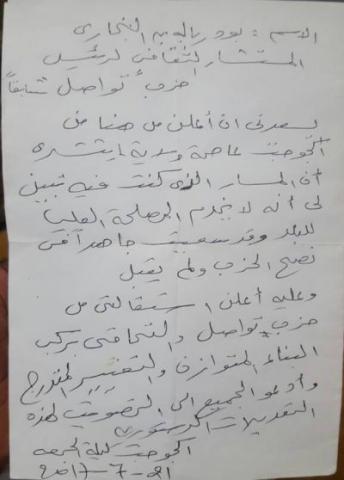 الاسم : بودربالة بن البخاري
المستشار الثقافي لرئيس
حزب تواصل سابقا
يسعدني أن أعلن من هنا من
عاصمة وسدية انتشره
أن المسار الذي كنت فيه تبين
لي أنه لا يخدم المصلحة العليا
للبلد وقد سعيت جاهدا في
نصح الحزب ولم يقبل
وعليه أعلن استقالتي من
حزب تواصل والتحاقي بركب
البناء المتوازن والتغيير المتدرج
وأدعو الجميع إلى التصويت لهذه
التعديلات الدستورية
ليلة الجمعة
21-7-2017